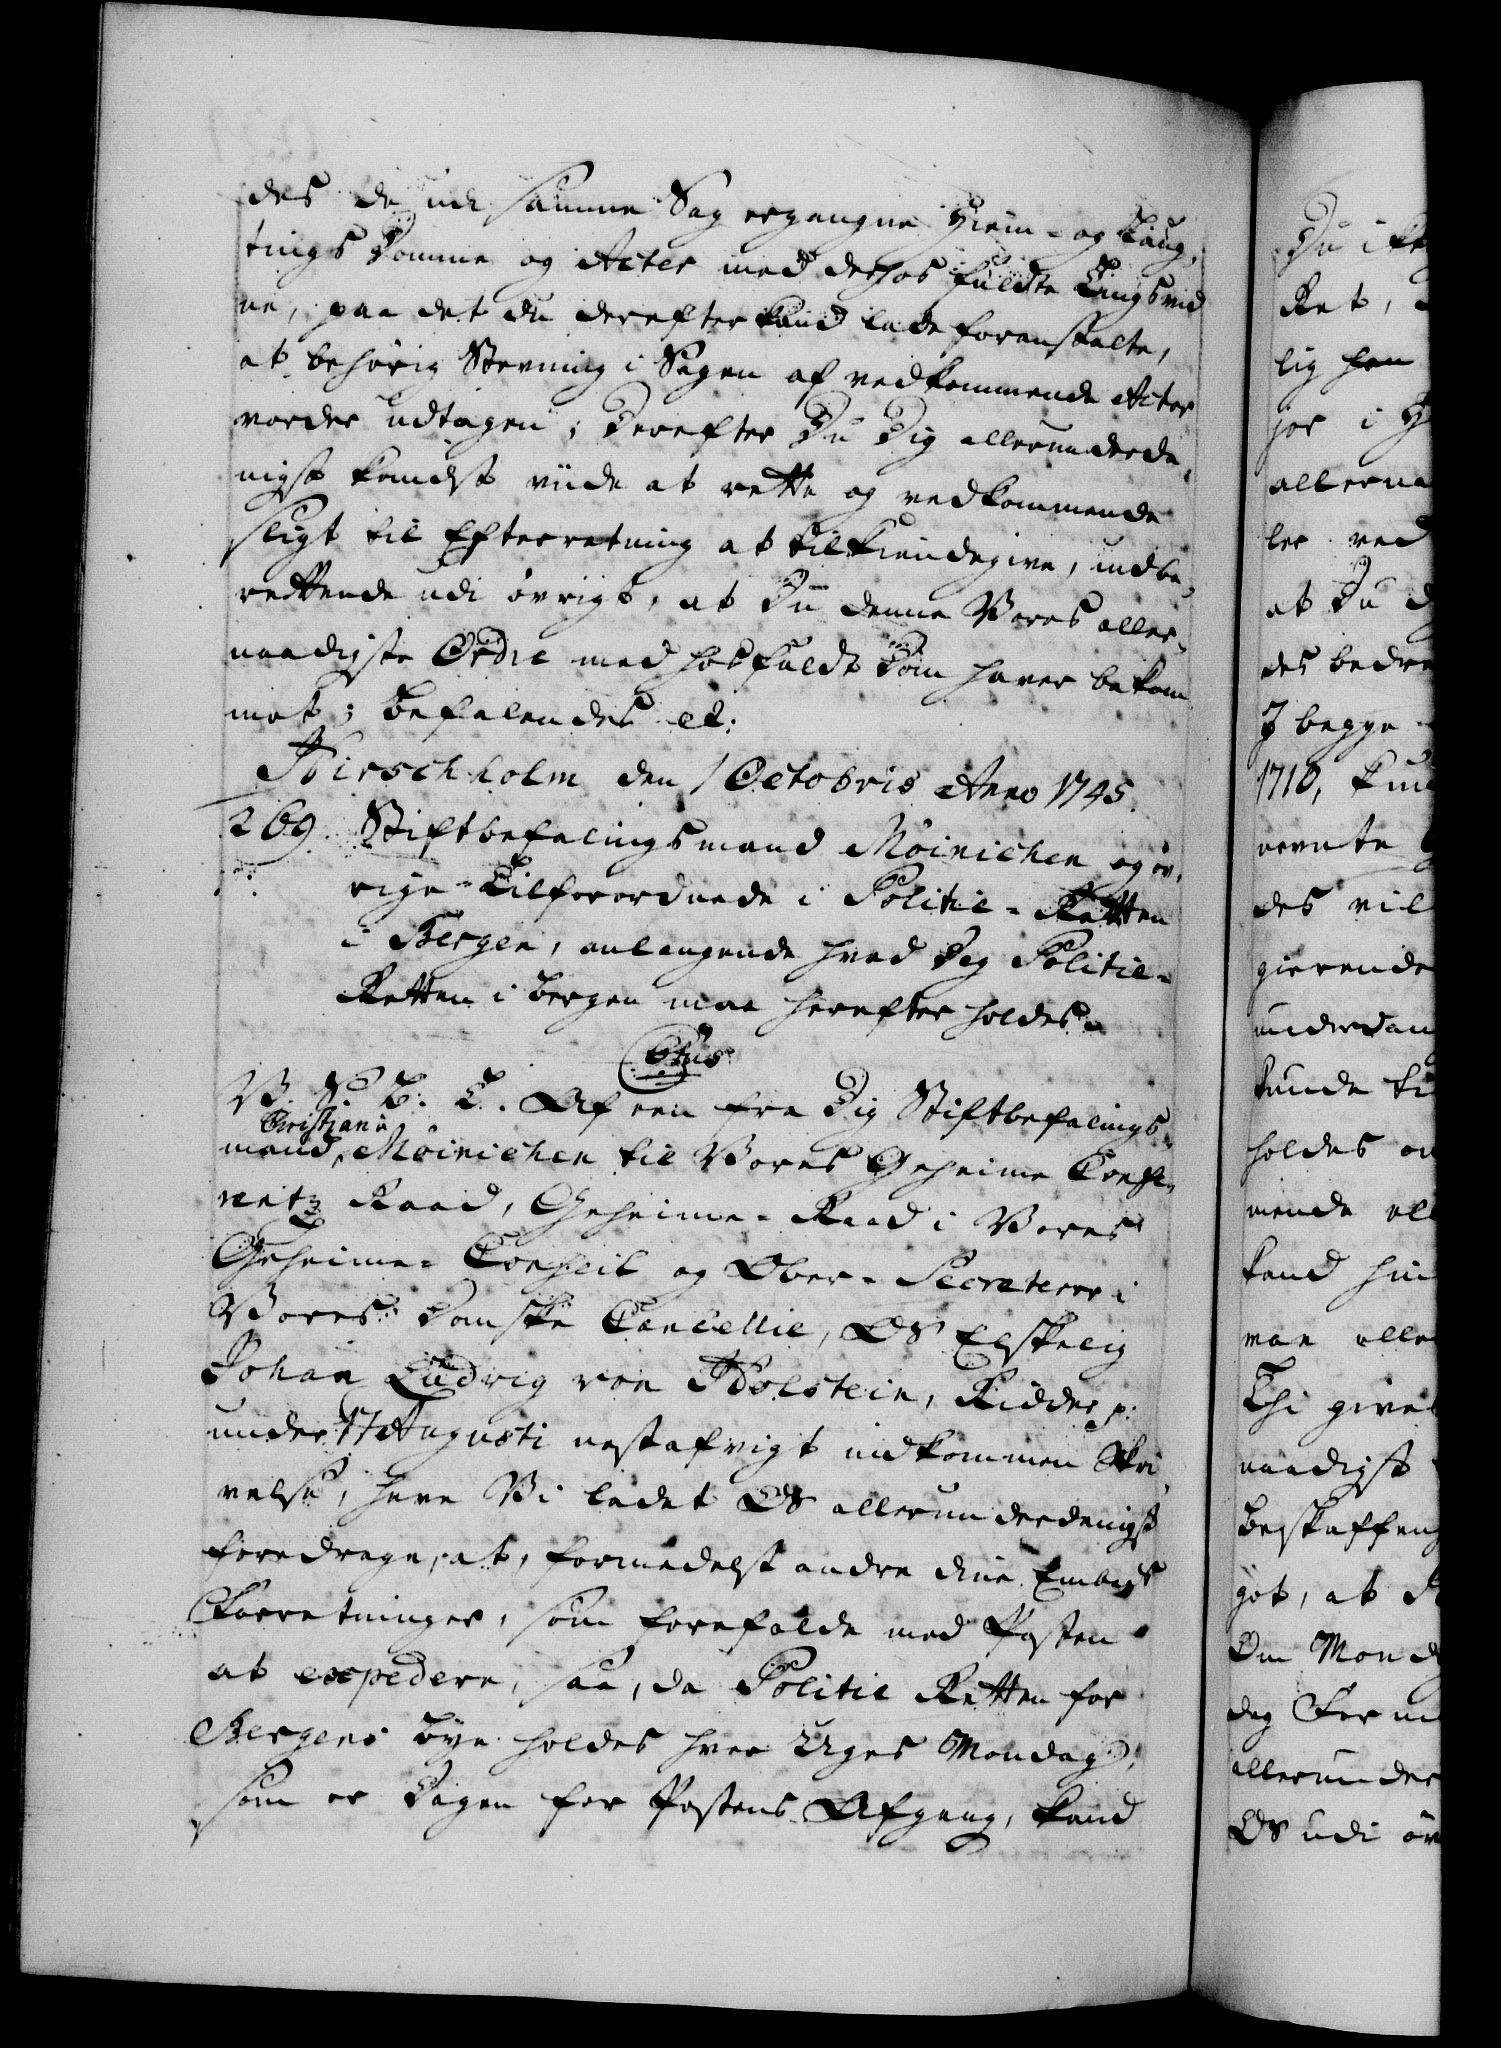 des de udi samme Sag ergangne Hiem- og Laug,
tings Domme og Acter med derhos fuldte Tingsvid
ne, paa det du derefter kand lade foranstalte,
at behörig Stevning i Sagen af vedkommende Actor
vorder udtagen; Derefter Du Dig allerunderda,
nigst kandst viide at rette og vedkommende
sligt til Efterretning at tilkiendegive, indbe,
rettende udi övrigt, at Du denne Vores aller,
naadigste Ordre med hosfuldt Dom haver bekom
met; Befalendes etc:
Hirschholm den 1 Octobris Anno 1745.
269. Stiftbefalingsmand Möinichen og öv,
rige Tilforordnede i Politie-Retten
i Bergen, anlangende hvad Dag Politie-
Retten i Bergen maa herefter holdes.
C6tus
V. G. B: T. Af een fra Dig Stiftbefalings-
Christian
mand, Möinichen til Vores Geheime Confe,
rentz Raad, Geheime-Raad i Vores
Geheime-Conseil og Ober-Secreterer i
Vores Danske Cancellie, OS Elskelig
Johan Ludvig von Holstein, Ridder p:
under 17 Augusti nestafvigt indkommen Skri,
velse, have Vi ladet OS allerunderdanigst
foredrage, at, formedelst andre dine Embeds
Forretninger, som forefalde med Posten
at expedere, saa, da Politie Retten for
Bergens Bye holdes hver Uges Mondag,
som er Dagen for Postens Afgang, kand
Du ikke
Ret,
lig han
jor i
allerna
ler ved
at Du
des bedre
J begge
1710,
nevnte
des vil
gierende
underdan
kunde ti
holdes
mende
kand hin
maa alle
Thi give
naadigst
Beskaffen
got, at
Om Mond
dag For
allerunder
OS udi öv